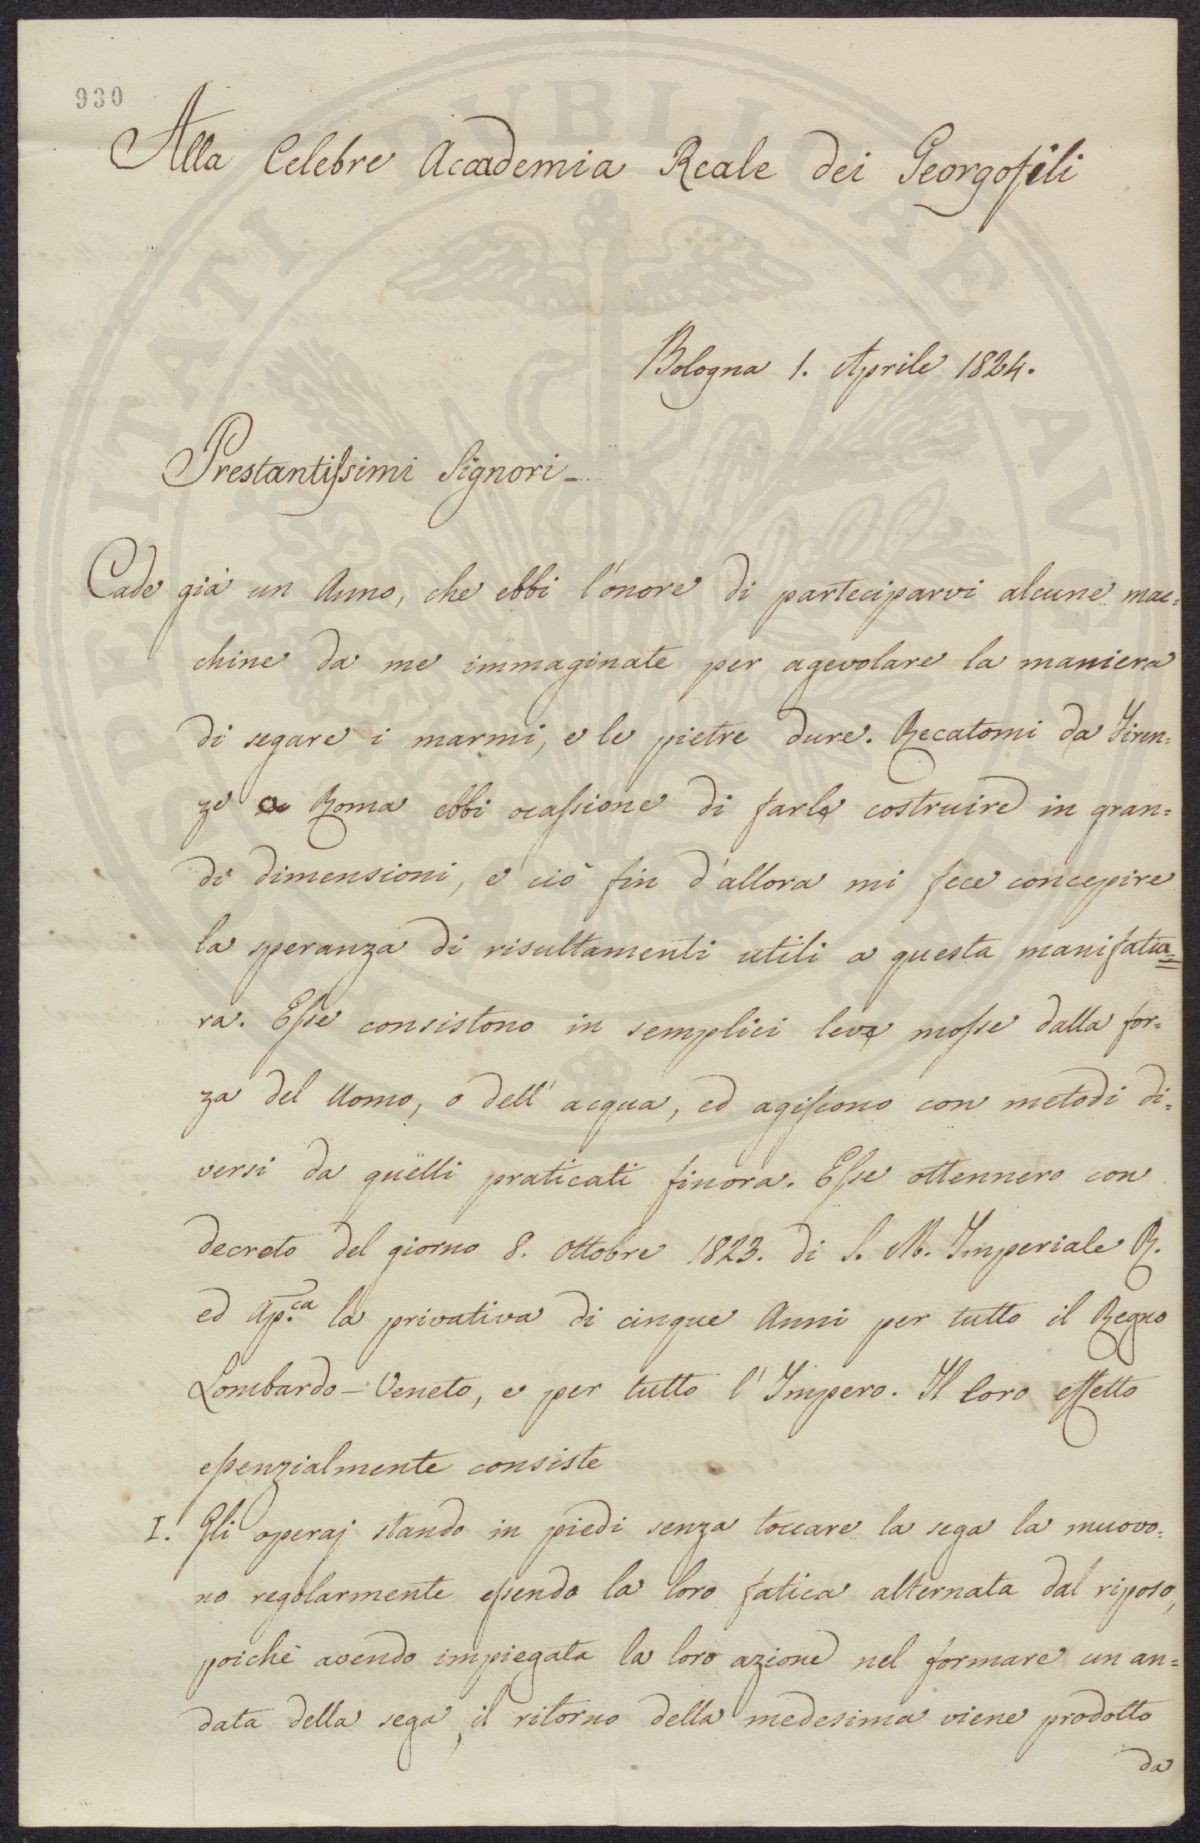 930
Alla Celebre Accademia Reale dei Georgofili
Bologna 1. Aprile 1824.
Prestantissimi Signori-
Cade già un Anno, che ebbi l'onore di parteciparvi alcune mac=
chine da me immaginate per agevolare la maniera
di segare i marmi, e le pietre dure. Recatomi da Firen=
ze a Roma ebbi ocassione di farle costruire in gran=
di dimensioni, e ciò fin d'allora mi fece concepire
la speranza di risultamenti utili a questa manifatu=
ra. Esse consistono in semplici leve mosse dalla for=
za del Uomo, o dell'acqua, ed agiscono con metodi di=
versi da quelli praticati finora. Esse ottennero con
decreto del giorno 8. Ottobre 1823. di S. M. Imperiale R.
ed Ap.ca la privativa di cinque Anni per tutto il Regno
Lombardo-Veneto, e per tutto l'Impero. Il loro effetto
essenzialmente consiste
I. Gli operaj stando in piedi senza toccare la sega la muovo=
no regolarmente essendo la loro fatica alternata dal riposo,
poichè avendo impiegata la loro azione nel formare un an=
data della sega, il ritorno della medesima viene prodotto
da